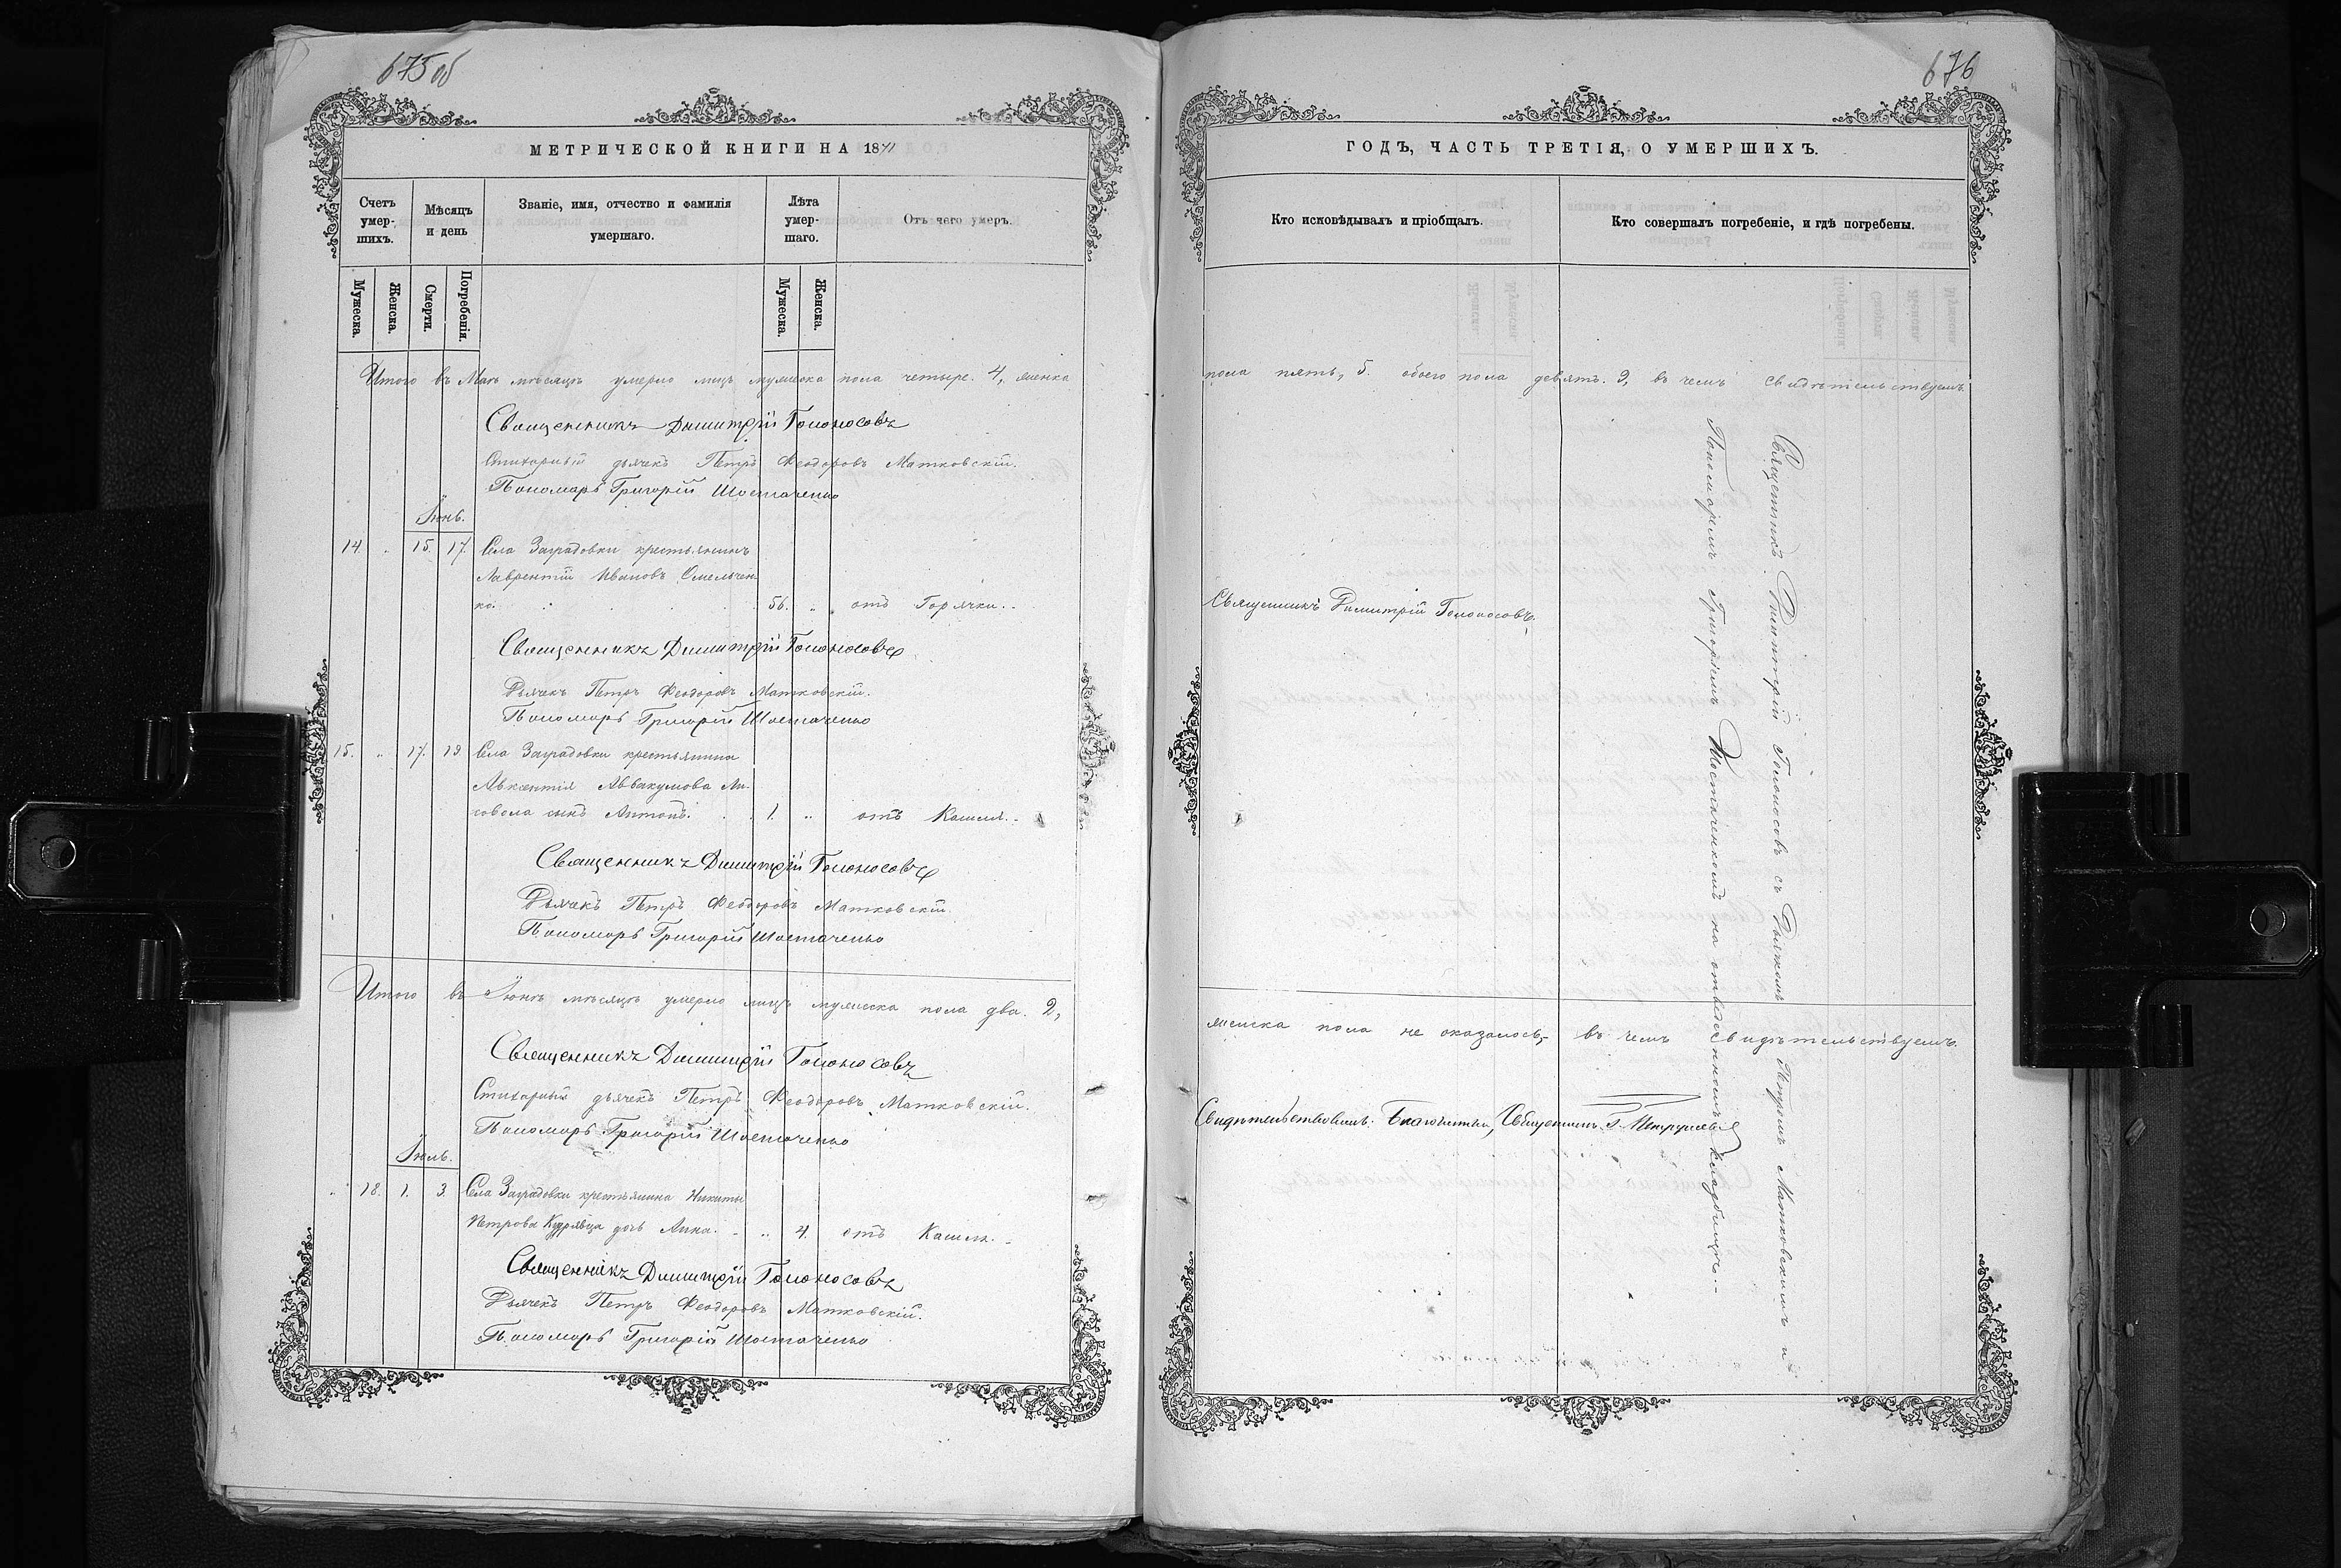 675об
МЕТРИЧЕСКОЙ КНИГИ НА 1871
Счетъ умер-шихъ.
Мѣсяцъ и день
Званіе, имя, отчество и фамилія умершаго.
Лѣта умер-шаго.
Отъ чего умеръ.
Мужеска.
Женска.
Смерти.
Погребенія.
Мужеска.
Женска.
Итого въ Маѣ мѣсяцѣ умерло лицъ мужеска пола четыре. 4, женска
Священникъ Димитрій Голоносовъ
Стихарный дьячекъ Петръ Феодоровъ Матковскій.
Пономарь Григорій Шостаченко
Іюнь.
14. „ 15. 17. Села Заградовки крестьянинъ
Лаврентій Ивановъ Омельчен-
ко. 56. „ отъ Горячки.
Священникъ Димитрій Голоносовъ
Дьячекъ Петръ Феодоровъ Матковскій.
Пономарь Григорій Шостаченко
15. „ 17. 19. Села Заградовки крестьянина
Авксентія Аввакумова Ли-
совола сынъ Антонъ. 1. „ отъ Кашля.
Священникъ Димитрій Голоносовъ
Дьячекъ Петръ Феодоровъ Матковскій
Пономарь Григорій Шостаченко
Итого въ Іюнѣ мѣсяцѣ умерло лицъ мужеска пола два. 2,
Священникъ Димитрій Голоносовъ
Стихарный дьячекъ Петръ Феодоровъ Матковскій.
Пономарь Григорій Шостаченко
Іюль.
„ 18. 1. 3. Села Заградовки крестьянина Никиты
Петрова Кудрявца дочь Анна. „ 4. отъ Кашля.
Священникъ Димитрій Голоносовъ
Дьячекъ Петръ Феодоровъ Матковскій.
Пономарь Григорій Шостаченко
676
ГОДЪ, ЧАСТЬ ТРЕТІЯ, О УМЕРШИХЪ.
Кто исповѣдывалъ и пріобщалъ.
Кто совершалъ погребеніе, и гдѣ погребены.
пола пять, 5. обоего пола девять. 9, въ чемъ свидѣтельствуемъ.
Священникъ Димитрій Голоносовъ.
Священникъ Димитрій Голоносовъ съ Дьячкомъ Петромъ Матковскимъ и
Пономаремъ Григоріемъ Шостаченкомъ на отведенномъ кладбищѣ.
женска пола не оказалось, въ чемъ свидѣтельствуемъ.
Свидѣтельствовалъ: Благочинный, Священникъ